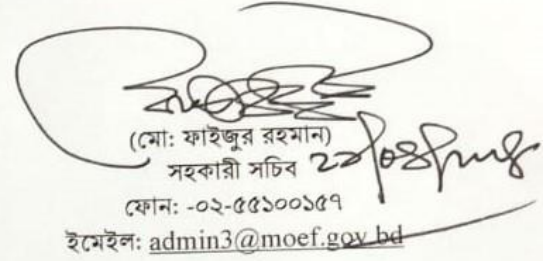 (মো: ফাইজুর রহমান)
সহকারী সচিব
ফোন: -০২-৫৫১০০১৫৭
ইমেইল: admin3@moef.gov.bd